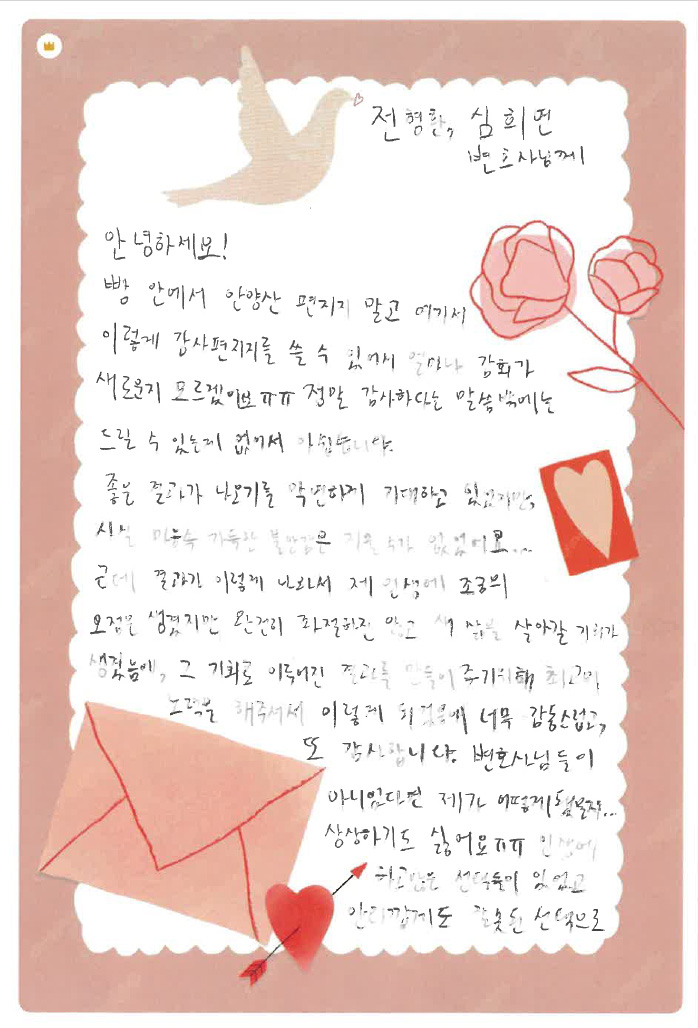 전형환, 심희연
변호사님께
안녕하세요!
빵 안에서 안양산 편지지 말고 여기서
이렇게 감사편지지를 쓸 수 있어서 얼마나 감회가
새로운지 모르겠어요ㅠㅠ 정말 감사하다는 말씀밖에는
드릴 수 있는게 없어서 아쉽습니다.
좋은 결과가 나오기를 막연하게 기대하고 있었지만,
사실 마음속 가득한 불안감은 지울 수가 없었어요...
근데 결과가 이렇게 나와서 제 인생에 조금의
오점은 생겼지만 완전히 좌절하진 않고 새 삶을 살아갈 기회가
생겼음에, 그 기회로 이루어진 결과를 만들어주기위해 최고의
노력을 해주셔서 이렇게 되었음에 너무 감동스럽고,
또 감사합니다. 변호사님들이
아니었다면 제가 어떻게 됐을지...
상상하기도 싫어요ㅠㅠ 인생에
하고많은 선택들이 있었고
안타깝게도 잘못된 선택으로